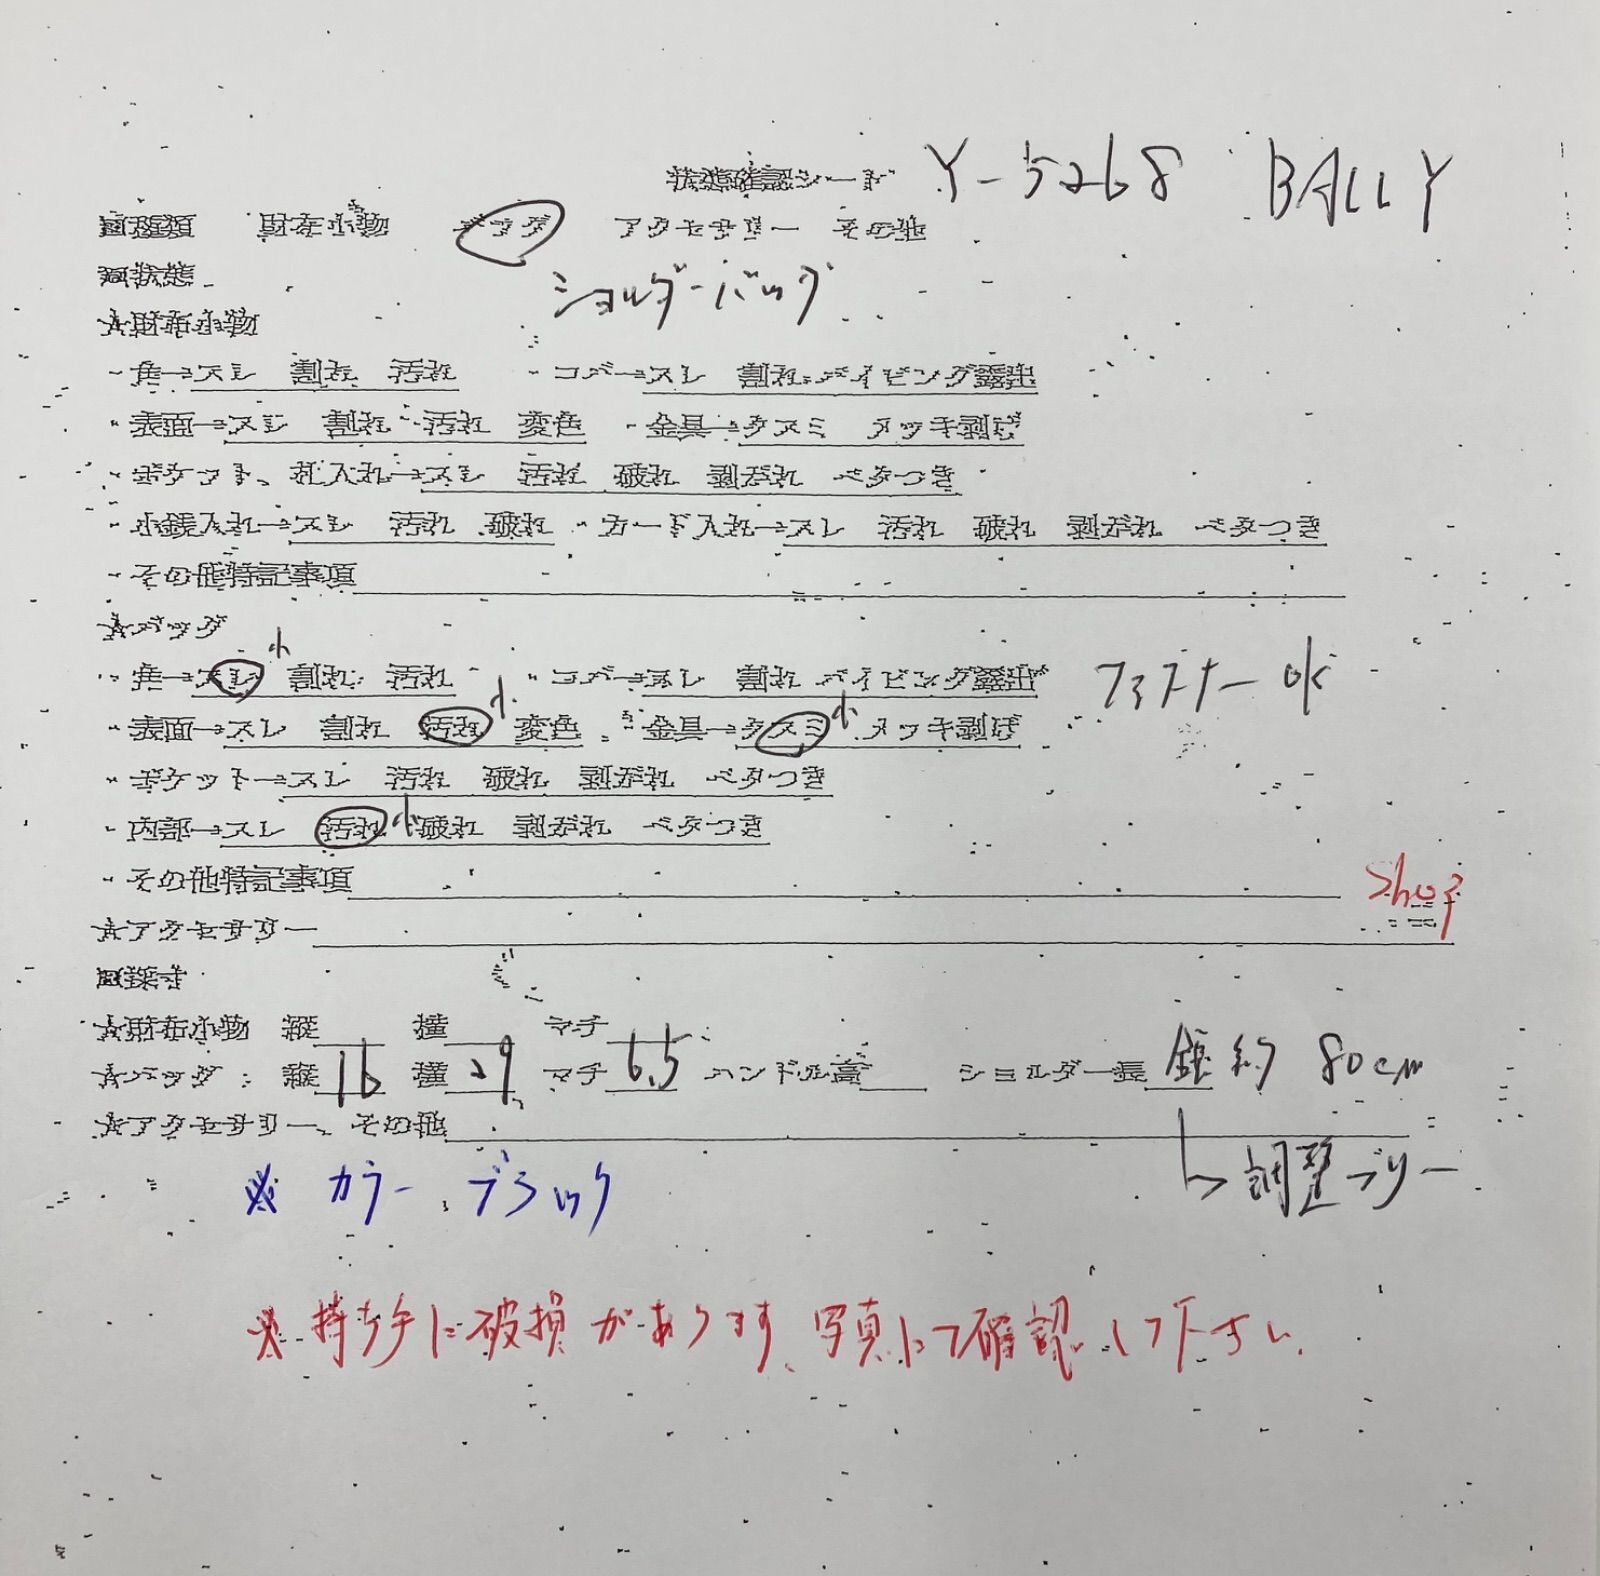 状態確認シート Y-5268 BALLY
■種類 財布小物 バッグ アクセサリー その他
■状態
ショルダーバッグ
★財布小物
・角→スレ 割れ 汚れ ・コバ→スレ 割れ パイピング露出
・表面→スレ 割れ 汚れ 変色 ・金具→クスミ メッキ剥げ
・ポケット、札入れ→スレ 汚れ 破れ 型崩れ ベタつき
・小銭入れ→スレ 汚れ 破れ ・カード入れ→スレ 汚れ 破れ 型崩れ ベタつき
・その他特記事項
★バッグ
・角→スレ 小 割れ 汚れ ・コバ→スレ 割れ パイピング露出 ファスナー ok
・表面→スレ 割れ 汚れ 小 変色 ・金具→クスミ 小 メッキ剥げ
・ポケット→スレ 汚れ 破れ 型崩れ ベタつき
・内部→スレ 汚れ 小 破れ 型崩れ ベタつき
・その他特記事項
★アクセサリー
■採寸
★財布小物 縦 横 マチ
★バッグ: 縦 16 横 29 マチ 6.5 ハンドル高 ショルダー長 約 80cm
★アクセサリー、その他
↳調整フリー
※ カラー ブラック
※ 持ち手に破損があります、写真にて確認して下さい.